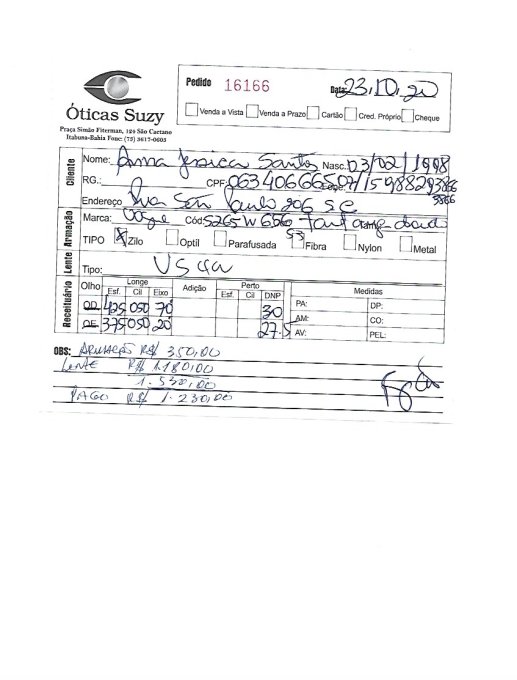 Pedido 16166 Data: 23.10.20
Venda a Vista Venda a Prazo Cartão Cred. Próprio Cheque
Óticas Suzy
Praça Simão Fiterman, 124 São Caetano
Itabuna-Bahia Fone: (73) 3617-0603
Cliente
Nome: Anna Jessica Santos Nasc. 03/02/1998
RG.: CPF: 06340666507/
Endereço Rua São Paulo 206 S C
Armação
Marca: Vogue Cód: 5265 W656
TIPO X Zilo Optil Parafusada 53 Fibra Nylon Metal
Lente
Tipo: VS
Receituário
Olho Longe Adição Perto DNP Medidas
Esf. Cil Eixo Esf. Cil
OD 425 050 70 30 PA: DP:
OE 375 050 20 27.5 AM: CO:
AV: PEL:
OBS: ARMAÇÃO R$ 350,00
LENTE R$ 1.180,00
1.530,00
PAGO R$ 1.230,00